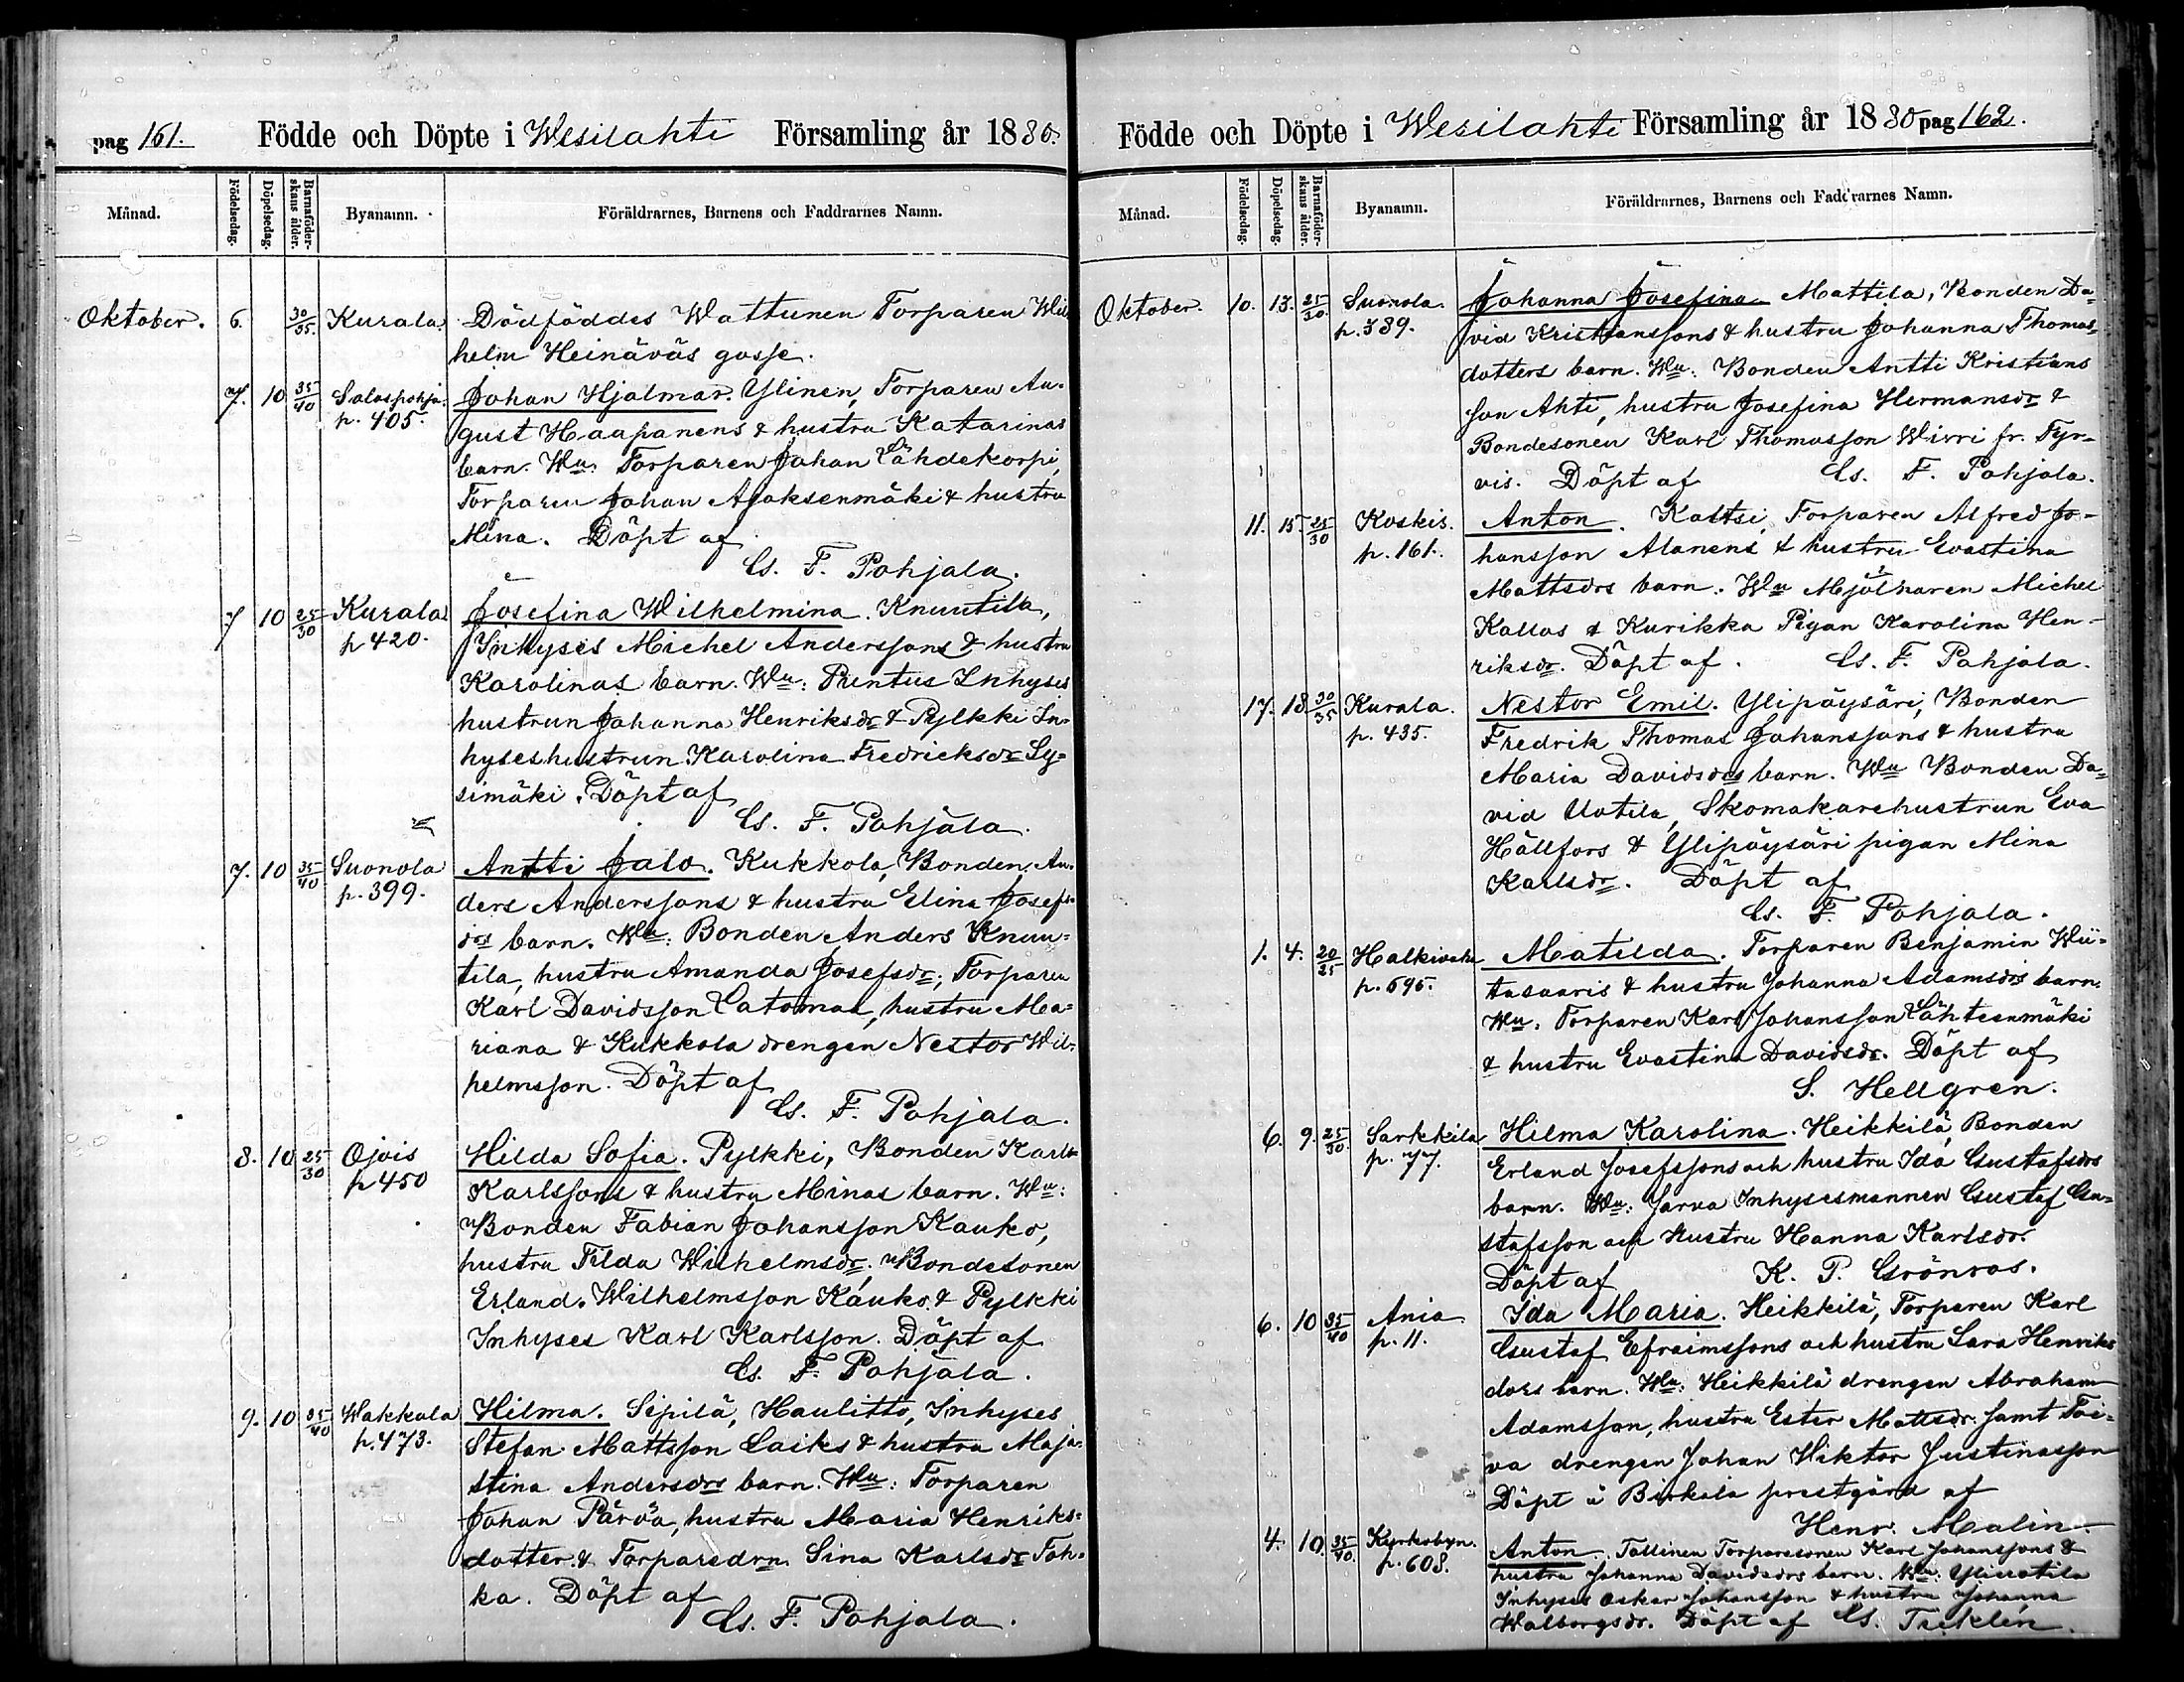 pag 161. Födde och Döpte i Wesilahti Församling år 1880.
Månad. Födelsedag. Döpelsedag. Barnaföderskans ålder. Byanamn. Föräldrarnes, Barnens och Faddrarnes Namn.
Oktober. 6. 30/35. Kurala Dödföddes Wattunen Torparen Wil
helm Heinäväs gosse.
7. 10 35/40 Salospohja. Johan Hjalmar. Ylinen, Torparen Au-
p. 405. gust Haapanens & hustru Katarinas
barn. Wu: Torparen Johan Lähdekorpi,
Torparen Johan Ajoksenmäki & hustru
Mina. Döpt af
Gs. F. Pohjala.
7 10 25/30 Kurala Josefina Wilhelmina. Knuutila,
p 420. Inhyses Michel Anderssons & hustru
Karolinas barn. Wu: Puntus Inhyses
hustrun Johanna Henriksdr & Pylkki In-
hyseshustrun Karolina Fredricksdr Sy=
simäki. Döpt af
Gs. F. Pohjala.
7. 10 35/40 Suonola Antti Jalo. Kukkola, Bonden An-
p. 399. ders Anderssons & hustru Elina Josefs-
drs barn. Wu: Bonden Anders Knuu=
tila, hustru Amanda Josefsdr; Torparen
Karl Davidsson Latomaa, hustru Ma=
riana & Kukkola drengen Nestor Wil-
helmsson. Döpt af
Gs. F. Pohjala.
8. 10 25/30 Ojois Hilda Sofia. Pylkki, Bonden Karls
p 450 Karlssons & hustru Minas barn. Wu:
Bonden Fabian Johansson Kauko,
hustru Tilda Wilhelmsdr. Bondesonen
Erland. Wilhelmsson Kauko & Pylkki
Inhyses Karl Karlsson. Döpt af
Gs. F. Pohjala.
9. 10 35/40 Wakkala Hilma. Sipilä, Haulitto, Inhyses
p. 473. Stefan Mattsson Laiks & hustru Maja-
stina Andersdrs barn. Wu: Torparen
Johan Pärvä, hustru Maria Henriks=
dotter & Torparedrn Sina Karlsdr Toh-
ka. Döpt af
Gs. F. Pohjala.
Födde och Döpte i Wesilahti Församling år 1880 pag 162.
Månad. Födelsedag. Döpelsedag. Barnaföderskans ålder. Byanamn. Föräldrarnes, Barnens och Faddrarnes Namn.
Oktober. 10. 13. 25/30. Suonola. Johanna Josefina Mattila, Bonden Da=
p. 389. vid Kristianssons & hustru Johanna Thomas=
dotters barn. Wu: Bonden Antti Kristians
son Ahti, hustru Josefina Hermansdr &
Bondesonen Karl Thomasson Wirri fr. Tyr=
vis. Döpt af Gs. F. Pohjala.
11. 15. 25/30 Koskis. Anton. Kaltsi, Torparen Alfred Jo-
p. 161. hansson Alanens & hustru Evastina
Mattsdrs barn. Wu Mjölnaren Michel
Kallas & Kurikka Pigan Karolina Hen-
riksdr. Döpt af Gs. F. Pohjala.
17. 18 30/35 Kurala. Nestor Emil. Ylipöysäri, Bonden
p. 435. Fredrik Thomas Johanssons & hustru
Maria Davidsdrs barn. Wu Bonden Da=
vid Uotila, Skomakarehustrun Eva
Hällfors & Ylipöysäri pigan Mina
Karlsdr. Döpt af
Gs. F. Pohjala.
1. 4. 20/25 Halkivaha Matilda. Torparen Benjamin Wii=
p. 595. tasaaris & hustru Johanna Adamsdrs barn.
Wu: Torparen Karl Johansson Lähteenmäki
& hustru Evastina Davidsdr. Döpt af
S. Hellgren.
6. 9. 25/30. Sarkkila Hilma Karolina. Heikkilä, Bonden
p. 77. Erland Josefssons och hustru Ida Gustafsdrs
barn. Wu: Jarva Inhysesmannen Gustaf Gu=
stafsson och hustru Hanna Karlsdr.
Döpt af K. P. Grönroos.
6. 10 35/40 Ania Ida Maria. Heikkilä, Torparen Karl
p. 11. Gustaf Efraimssons och hustru Sara Henriks
dotrs barn. Wu: Heikkilä drengen Abraham
Adamsson, hustru Ester Mattsdr. samt Toi=
va drengen Johan Wiktor Justinasson
Döpt i Birkala prestgård af
Henr. Malin.
4. 10. 35/40. Kyrkobyn. Anton. Tallinen Torparesonen Karl Johanssons &
p. 608. hustru Johanna Davidsdrs barn. Wu: Yliuotila
Inhyses Oskar Johansson & hustru Johanna
Walborgsdr. Döpt af Gs. Taeklin.